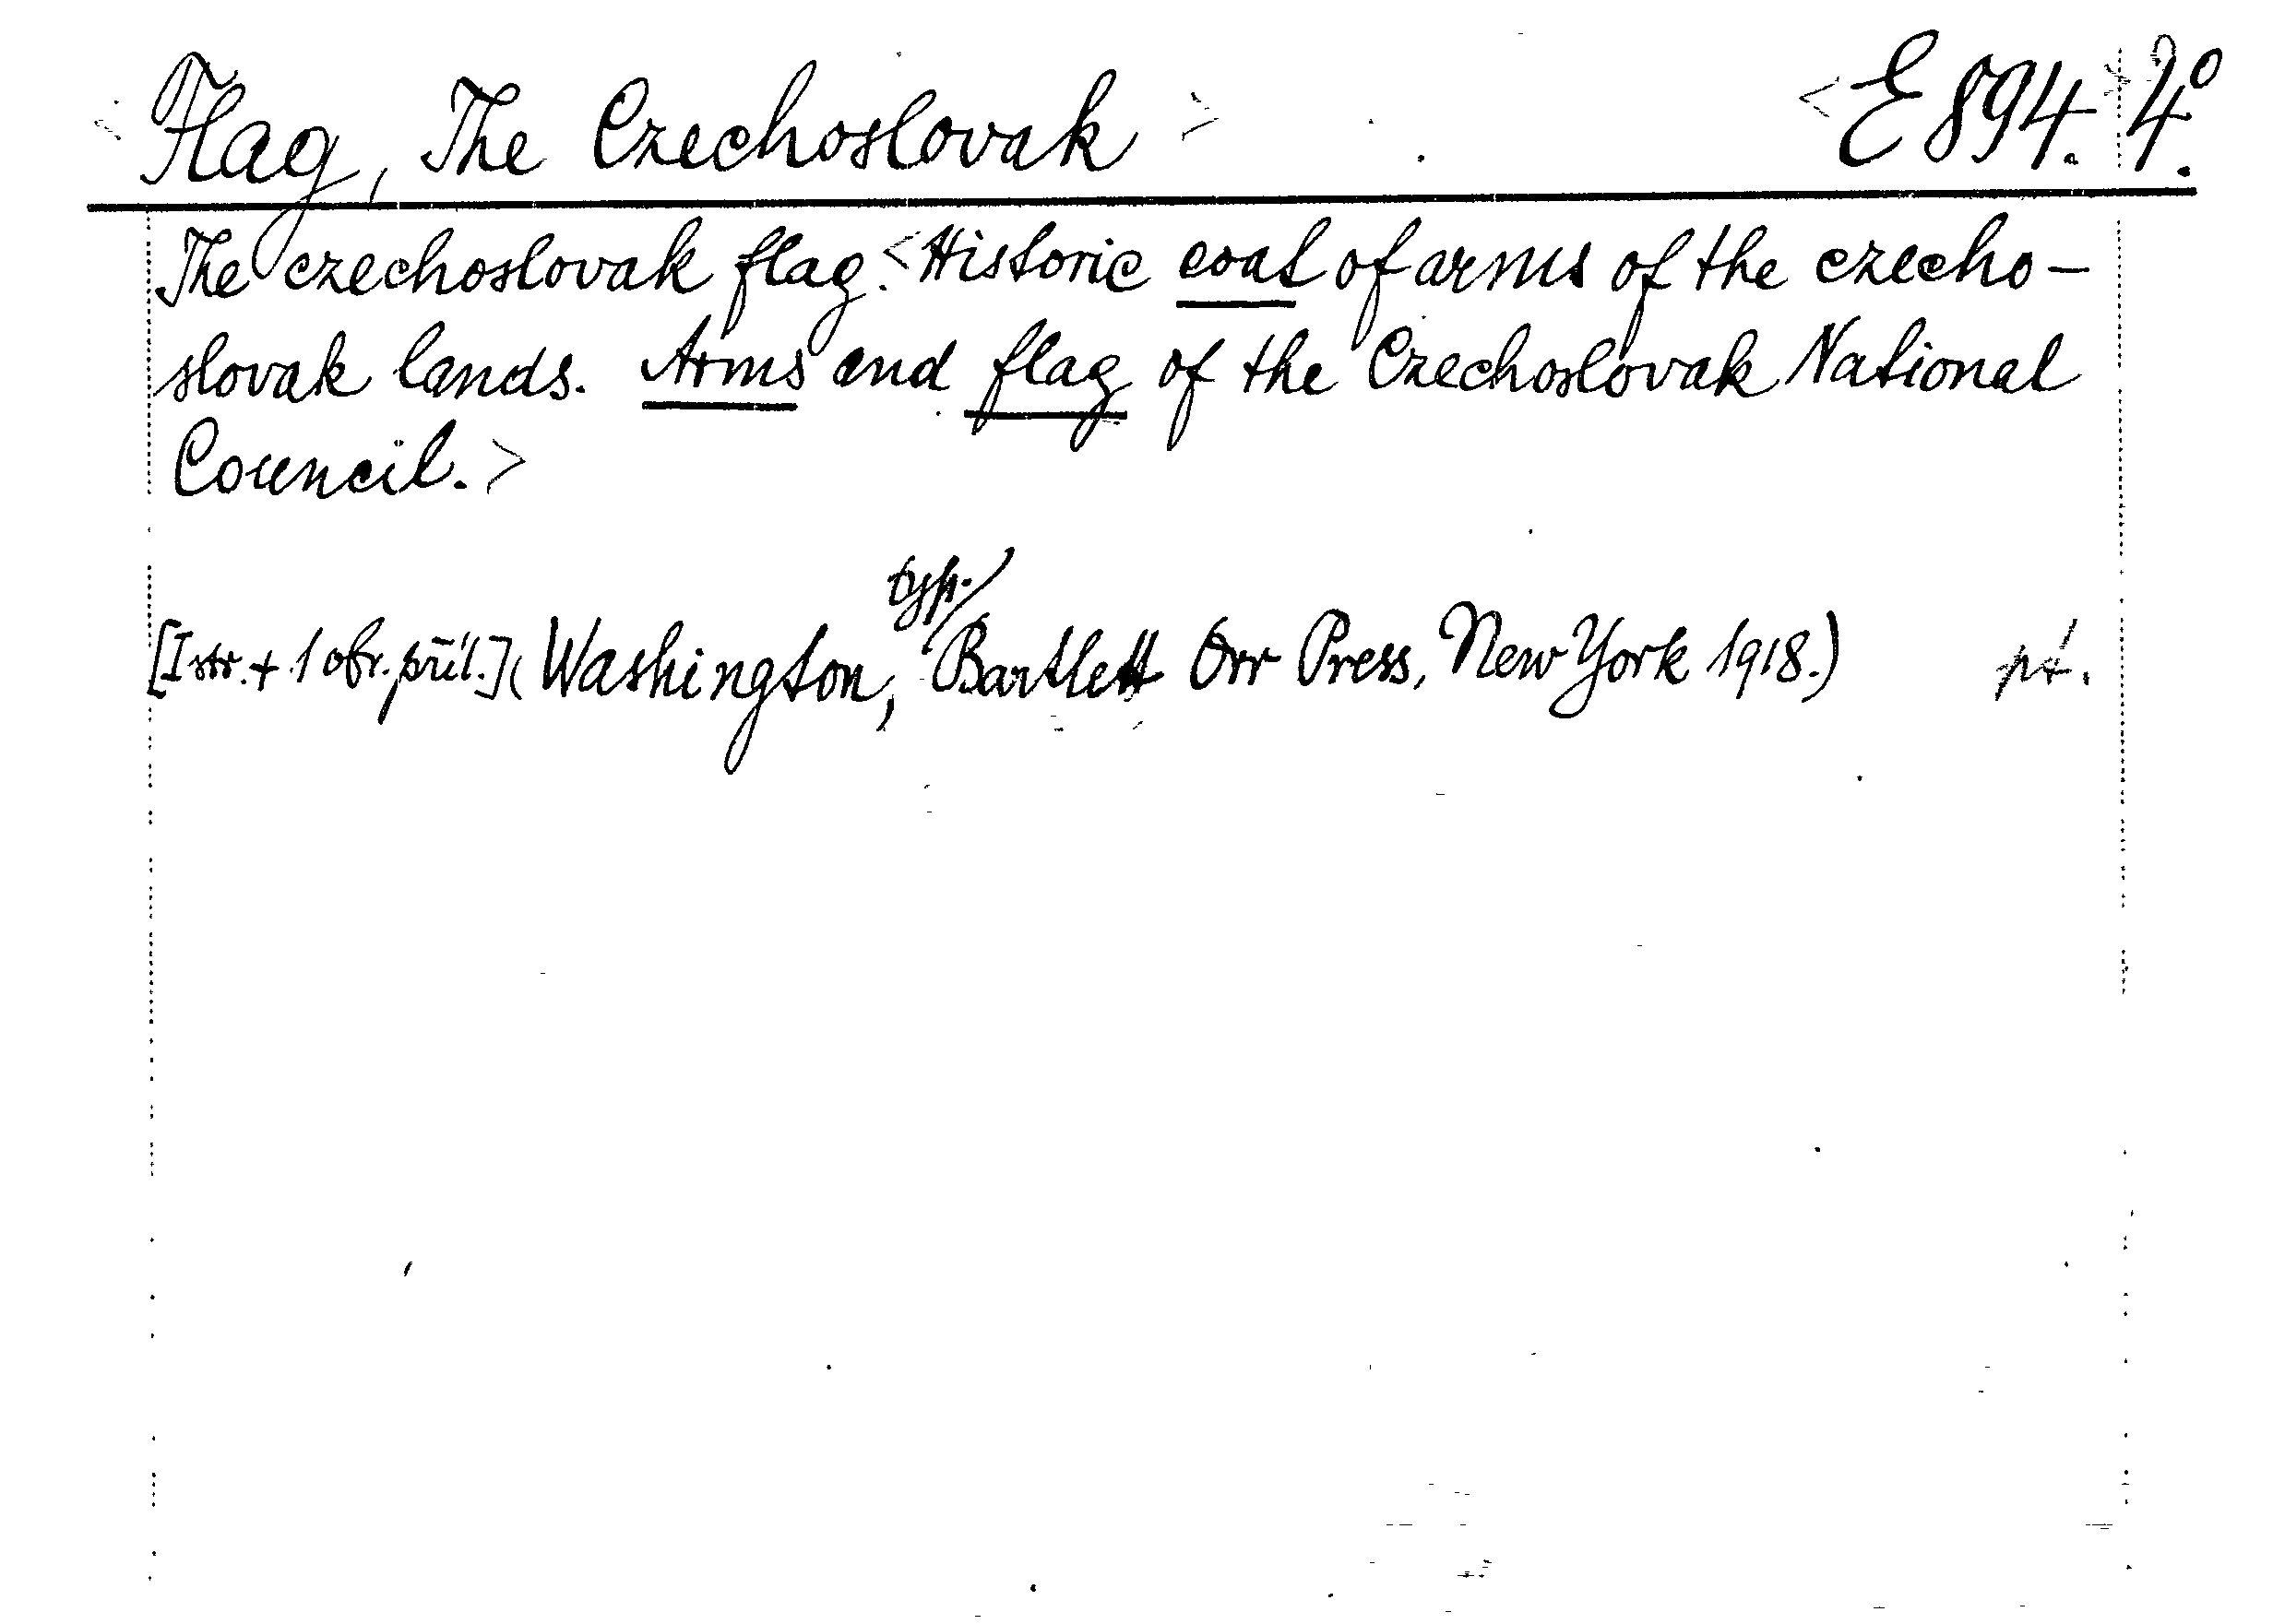 <Flag, The Czechoslovak> <E 894.> 4°.
The czechoslovak flag. <Historic coat of arms of the czecho-
slovak lands. Arms and flag of the Czechoslovak National
Council.>
typ./
[I str. + 1 obr. příl.] (Washington, Bartlett Orr Press, New York 1918.)